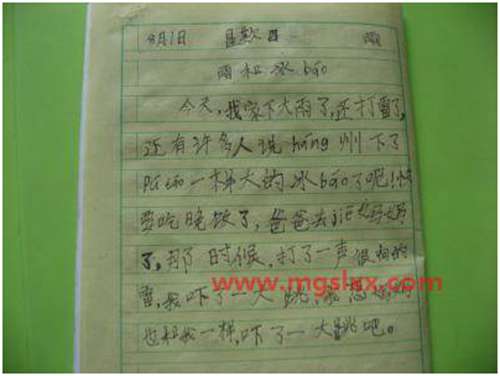 8月1日 星期日 雨
雨和冰báo
今天,我家下大雨了,还打雷了,
还有许多人说háng州下了
一样大的冰báo了呢!快
要吃晚饭了,爸爸去jiē妈妈
了,那时候,打了一声很响的
雷,我吓了一大跳,我想妈妈
也和我一样,吓了一大跳吧。
www.mgslxx.com